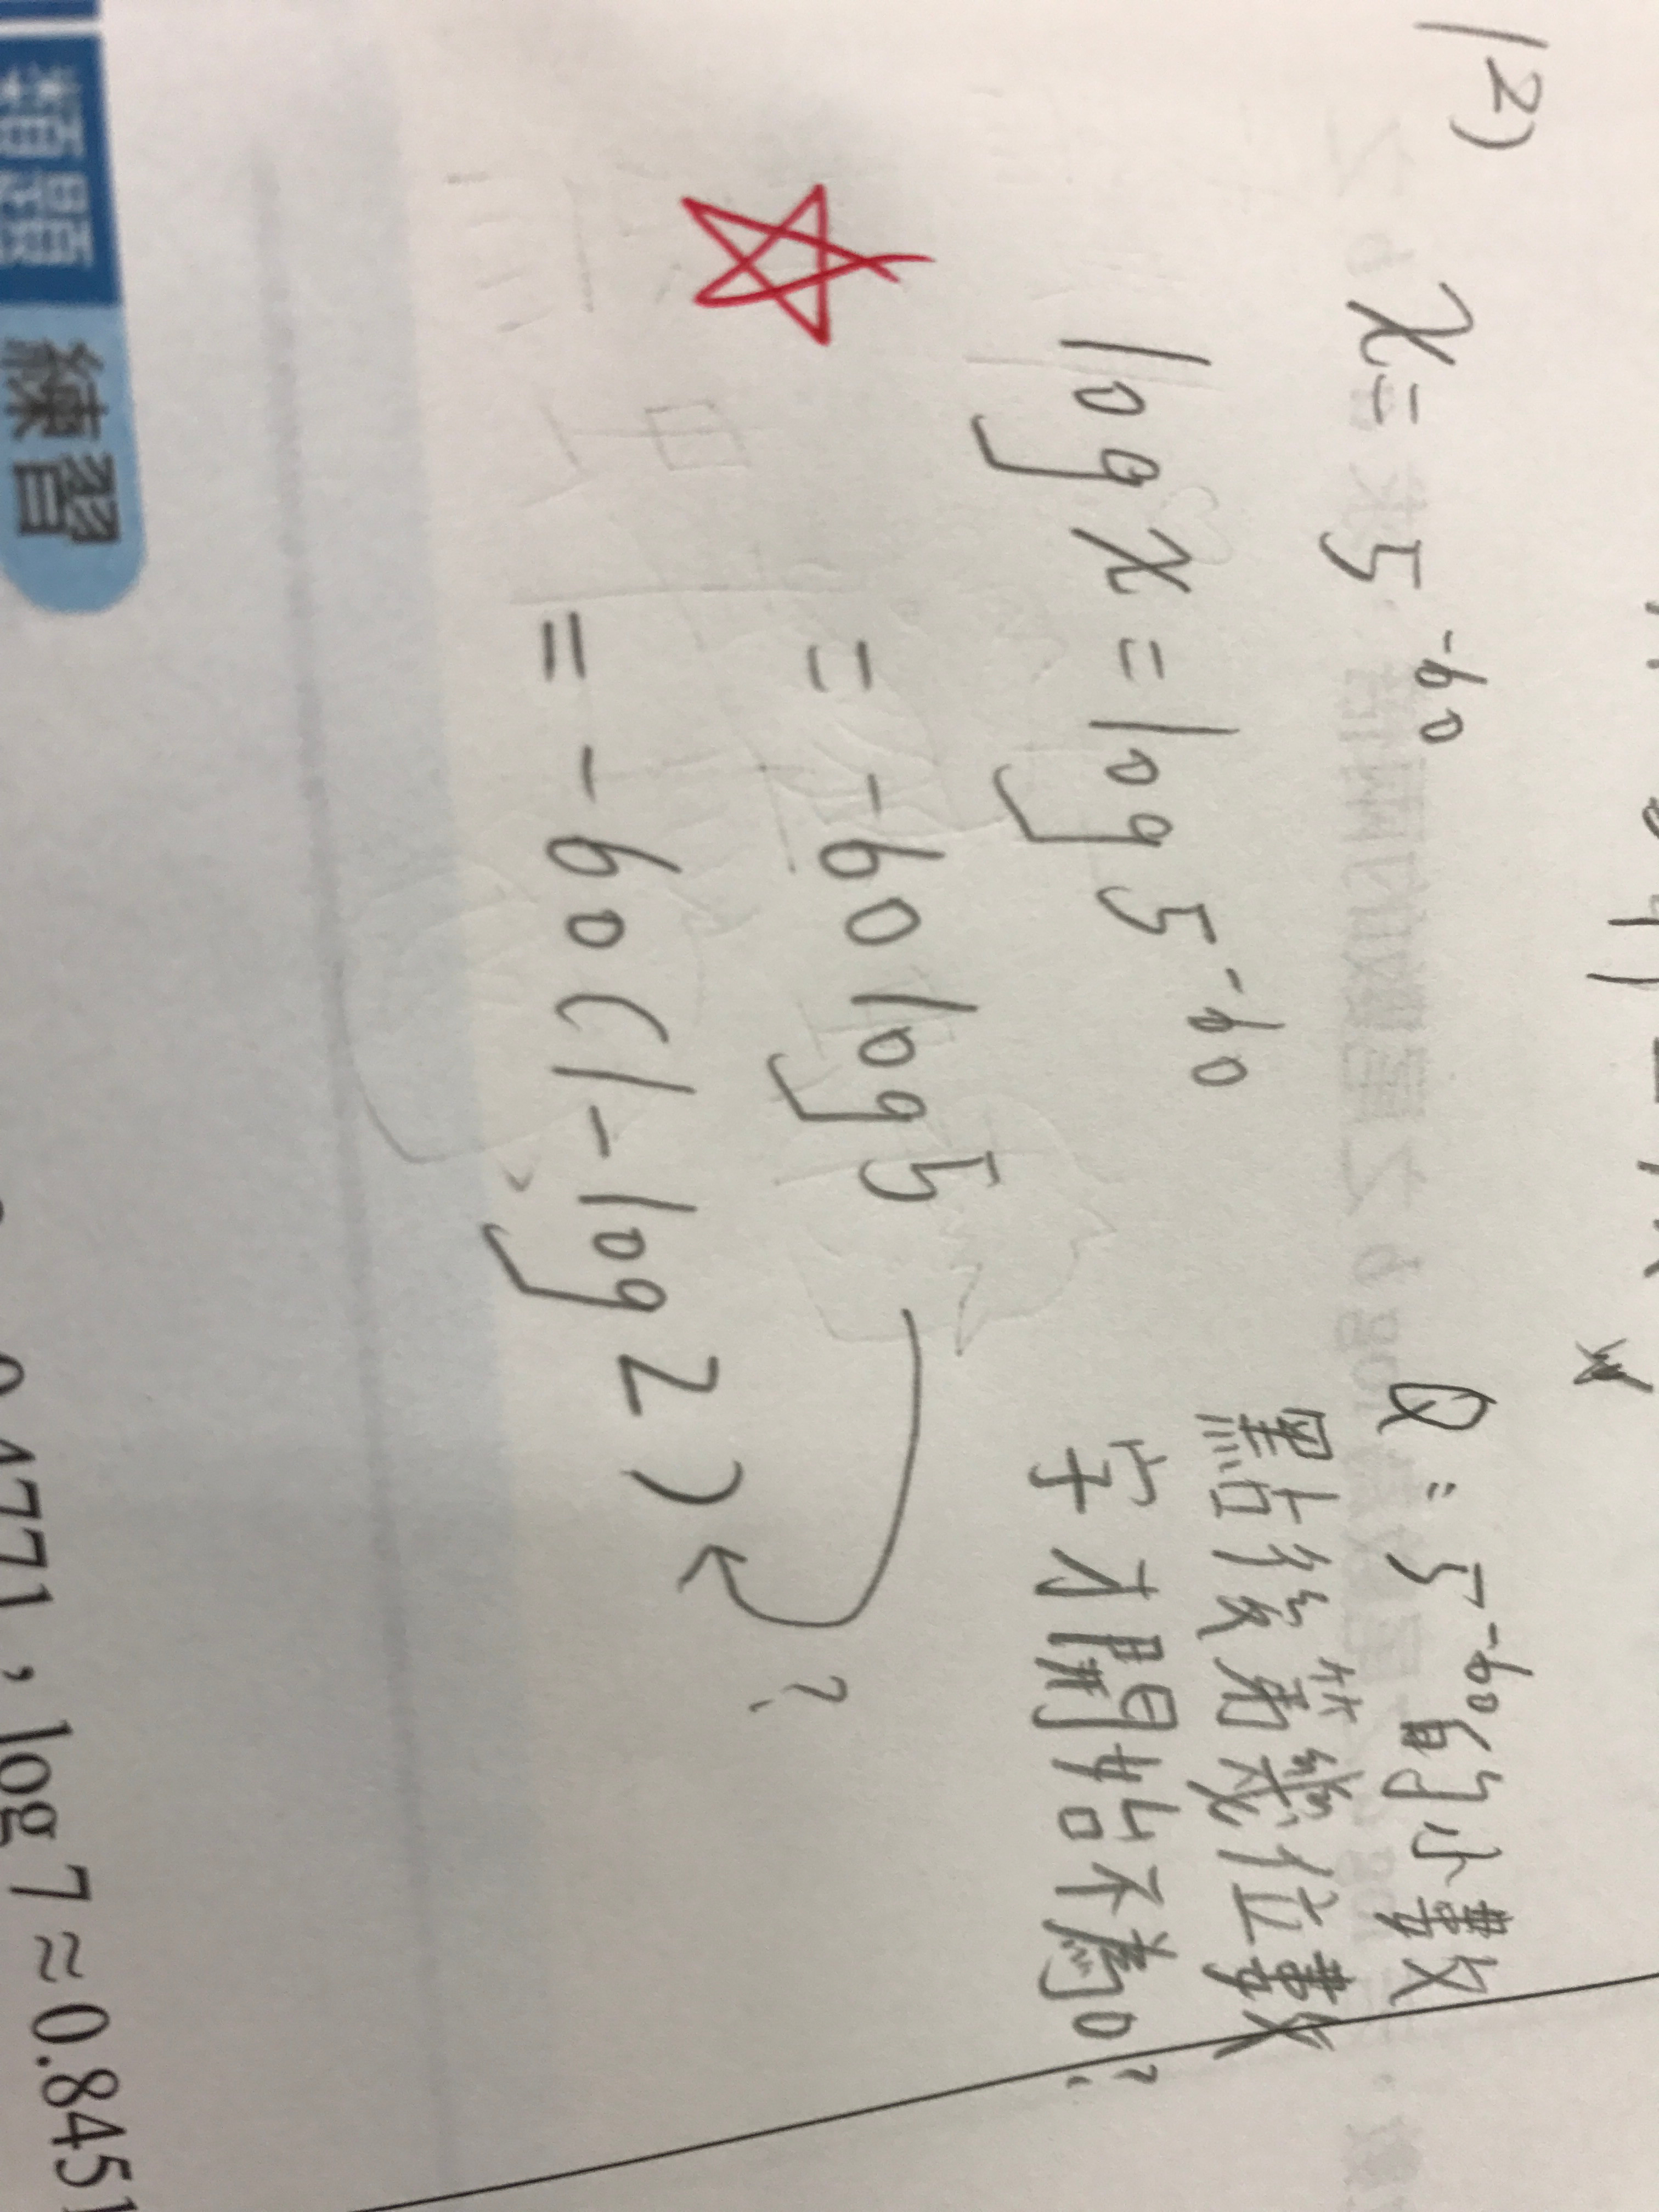 (2)
x = 5^-60
log x = log 5^-60
= -60 log 5
= -60 (1 - log 2) ?
Q: 5^-60的小數
點後第幾位數
字才開始不為0?
類題 練習
0.4771，log 7 ≈ 0.8451